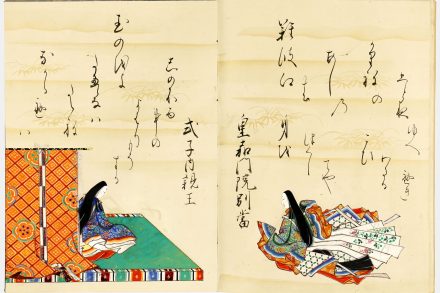 難波江
あしの
かりねの
一よゆへ
身を
つくし
てや
こひ
わたる
へき
皇嘉門院別當
玉の緒よ
たえなは
たえね
なから
へは
しのふる
事の
よはりも
そ
する
式子内親王